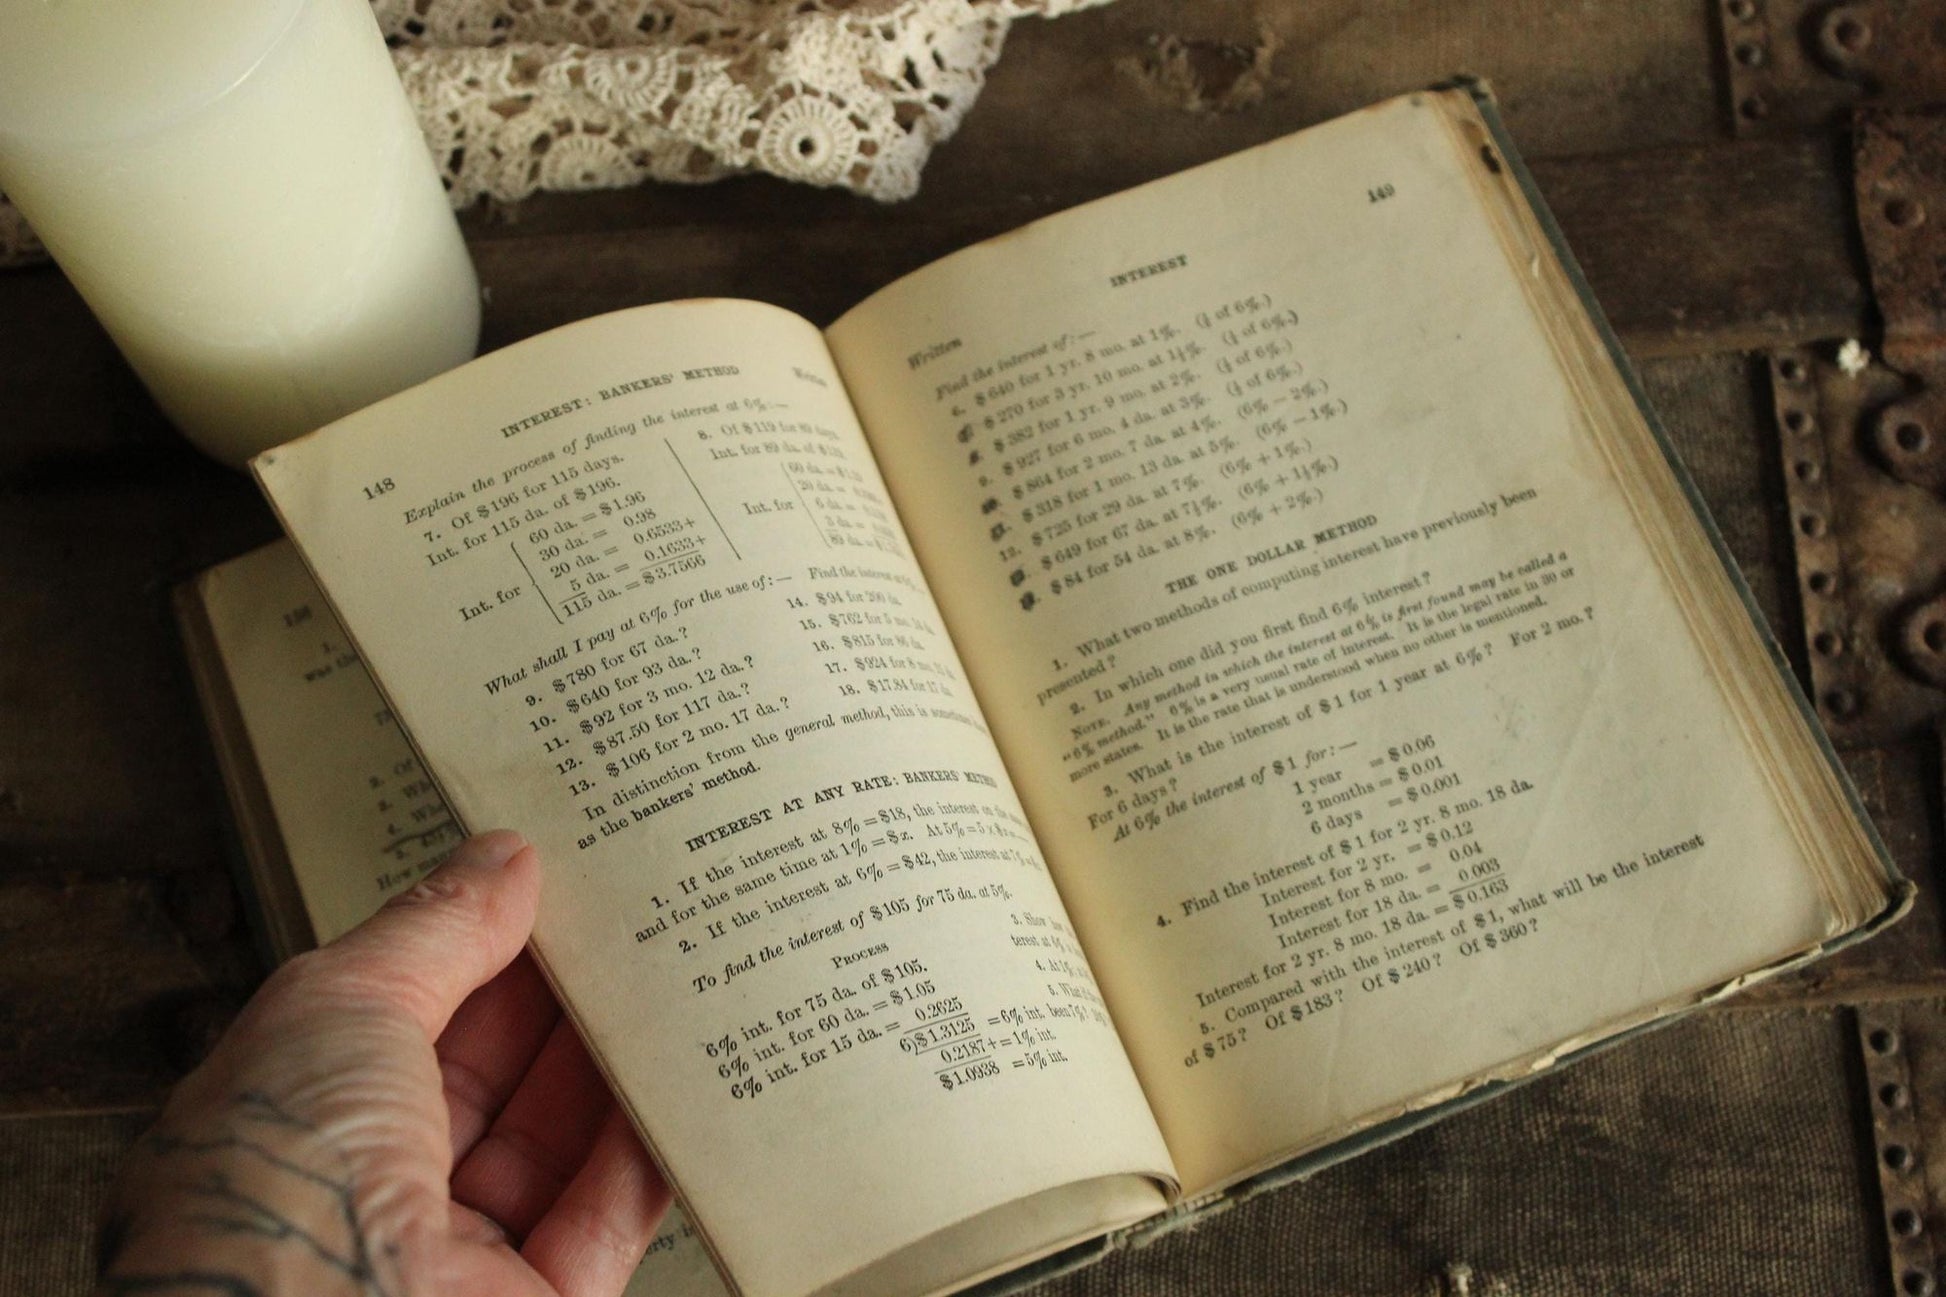 148
INTEREST: BANKERS' METHOD
Explain the process of finding the interest at 6%:—
7. Of $196 for 115 days.
Int. for 115 da. of $196.
Int. for
60 da. = $1.96
30 da. = 0.98
20 da. = 0.6533+
5 da. = 0.1633+
115 da. = $3.7566
8. Of $119 for 89 days.
Int. for 89 da. of
Int. for
60 da. =
20 da. =
6 da. =
3 da. =
89 da. =
What shall I pay at 6% for the use of:—
9. $780 for 67 da.?
10. $640 for 93 da.?
11. $92 for 3 mo. 12 da.?
12. $87.50 for 117 da.?
13. $106 for 2 mo. 17 da.?
Find the interest
14. $94 for 200 da.
15. $762 for 5 mo.
16. $815 for 86 da.
17. $924 for 8 mo.
18. $17.84 for 17 da.
In distinction from the general method, this is sometimes
as the bankers' method.
INTEREST AT ANY RATE: BANKERS' METHOD
1. If the interest at 8% = $18, the interest on the
and for the same time at 1% = $x. At 5% = 5 x
2. If the interest at 6% = $42, the interest at
To find the interest of $105 for 75 da. at 5%.
PROCESS
6% int. for 75 da. of $105.
6% int. for 60 da. = $1.05
6% int. for 15 da. = 0.2625
6)$1.3125 = 6% int.
0.2187+ = 1% int.
$1.0938 = 5% int.
3. Show
terest at 6%
4. At 1%
5. What
been 7%?
149
INTEREST
Written
Find the interest of:—
$640 for 1 yr. 8 mo. at 1%. of 6%.)
$270 for 3 yr. 10 mo. at of 6%.)
$382 for 1 yr. 9 mo. at 2%. of 6%.)
$927 for 6 mo. 4 da. at 3%. of 6%.)
$864 for 2 mo. 7 da. at 4%. (6% − 2%.)
$318 for 1 mo. 13 da. at 5%. (6% − 1%.)
12. $725 for 29 da. at 7%. (6% + 1%.)
$649 for 67 da. at 7½%. (6% + 1½%.)
$84 for 54 da. at 8%. (6% + 2%.)
THE ONE DOLLAR METHOD
1. What two methods of computing interest have previously been
presented?
2. In which one did you first find 6% interest?
NOTE. Any method in which the interest at 6% is first found may be called a
"6% method." 6% is a very usual rate of interest. It is the legal rate in 30 or
more states. It is the rate that is understood when no other is mentioned.
3. What is the interest of $1 for 1 year at 6%? For 2 mo.?
For 6 days?
At 6% the interest of $1 for:—
1 year = $0.06
2 months = $0.01
6 days = $0.001
4. Find the interest of $1 for 2 yr. 8 mo. 18 da.
Interest for 2 yr. = $0.12
Interest for 8 mo. = 0.04
Interest for 18 da. = 0.003
Interest for 2 yr. 8 mo. 18 da. = $0.163
5. Compared with the interest of $1, what will be the interest
of $75? Of $183? Of $240? Of $360?